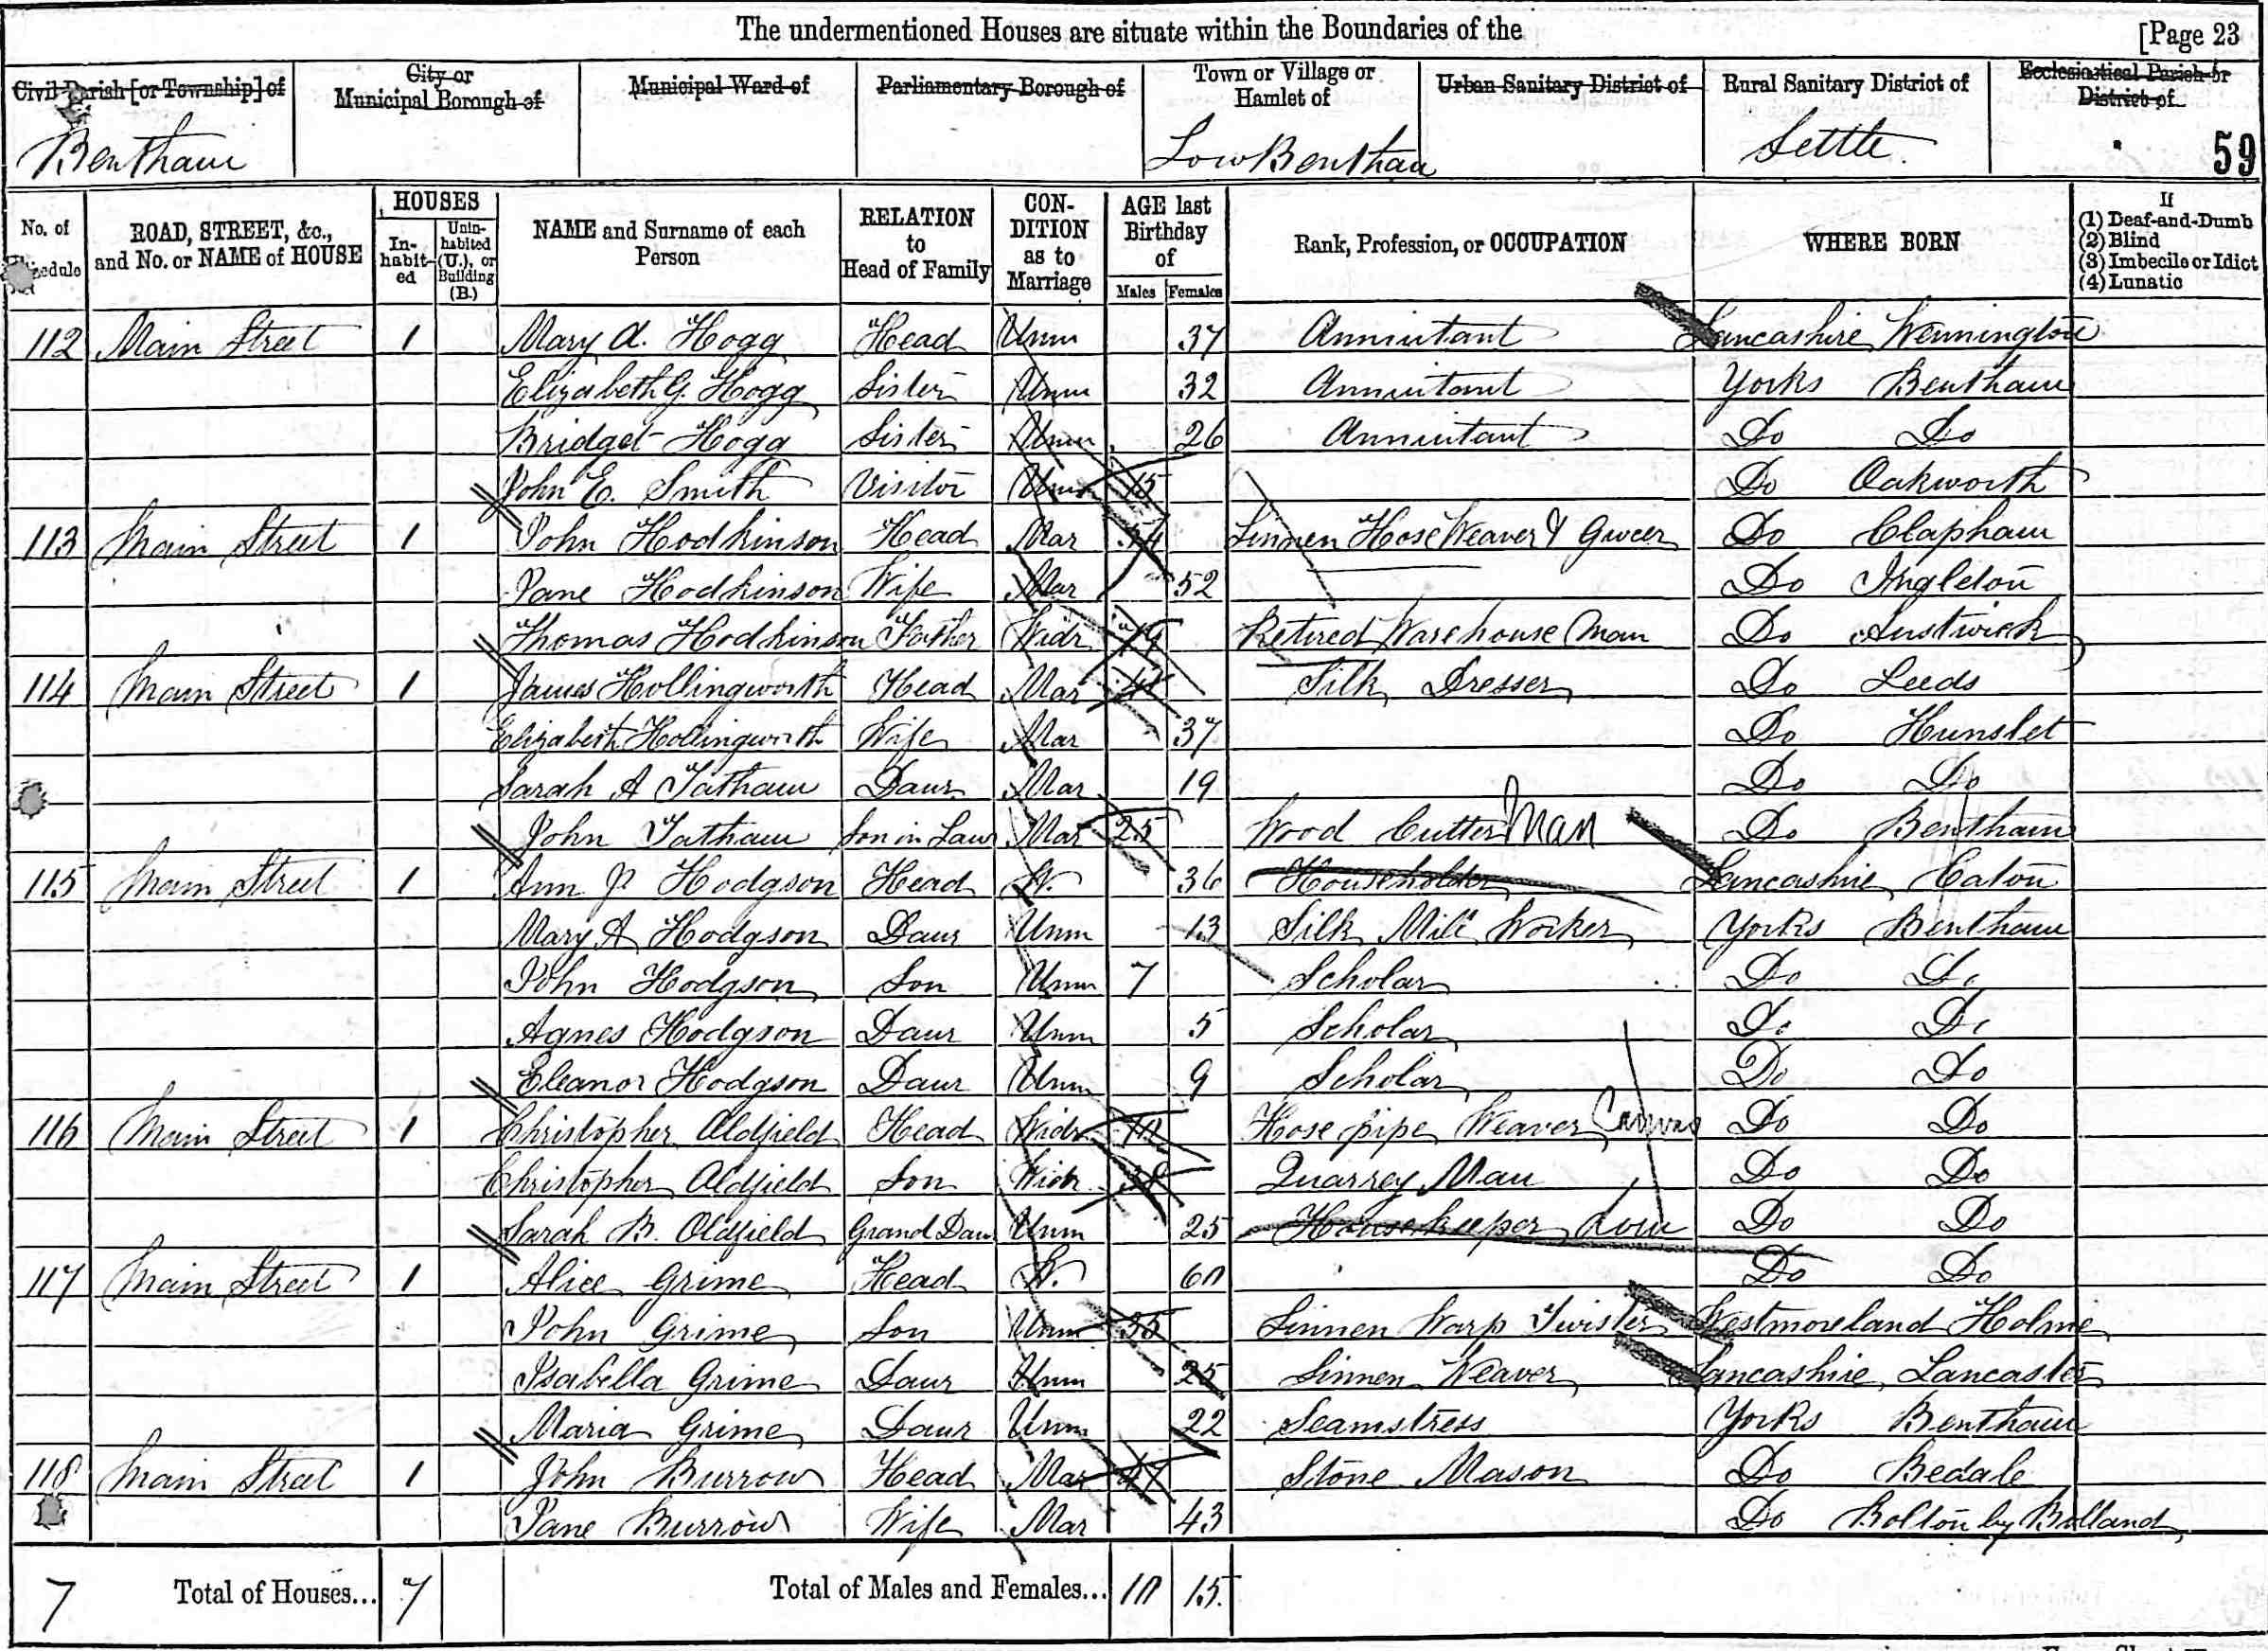 The undermentioned Houses are situate within the Boundaries of the [Page 23
Civil Parish [or Township] of City or Municipal Borough of Municipal Ward of Parliamentary Borough of Town or Village or Hamlet of Urban Sanitary District of Rural Sanitary District of Ecclesiastical Parish or District of
Bentham Low Bentham Settle. 59
No. of Schedule ROAD, STREET, &c., and No. or NAME of HOUSE HOUSES Inhabited Uninhabited (U.), or Building (B.) NAME and Surname of each Person RELATION to Head of Family CONDITION as to Marriage AGE last Birthday of Males Females Rank, Profession, or OCCUPATION WHERE BORN If (1) Deaf-and-Dumb (2) Blind (3) Imbecile or Idiot (4) Lunatic
112 Main Street 1 Mary A. Hogg Head Unm 37 Annuitant Lancashire Wennington
Elizabeth G. Hogg Sister Unm 32 Annuitant Yorks Bentham
Bridget Hogg Sister Unm 26 Annuitant Do Do
John E. Smith Visitor Unm 15 Do Oakworth
113 Main Street 1 John Hodkinson Head Mar Linnen Hose Weaver & Grocer Do Clapham
Jane Hodkinson Wife Mar 52 Do Ingleton
Thomas Hodkinson Father Widr Retired Warehouse Man Do Austwick
114 Main Street 1 James Hollingworth Head Mar Silk Dresser Do Leeds
Elizabeth Hollingworth Wife Mar 37 Do Hunslet
Sarah A Tatham Daur Mar 19 Do Do
John Tatham Son in Law Mar 25 Wood Cutter Man Do Bentham
115 Main Street 1 Ann J Hodgson Head W. 36 Householder Lancashire Caton
Mary A Hodgson Daur Unm 13 Silk Mill Worker Yorks Bentham
John Hodgson Son Unm 7 Scholar Do Do
Agnes Hodgson Daur Unm 5 Scholar Do Do
Eleanor Hodgson Daur Unm 9 Scholar Do Do
116 Main Street 1 Christopher Oldfield Head Widr Hose pipe Weaver Canvas Do Do
Christopher Oldfield Son Widr 38 Quarrey Man Do Do
Sarah B. Oldfield Grand Daur Unm 25 Housekeeper Dom Do Do
117 Main Street 1 Alice Grime Head W. 60 Do Do
John Grime Son Unm 35 Linnen Warp Twister Westmoreland Holme
Isabella Grime Daur Unm 25 Linnen Weaver Lancashire Lancaster
Maria Grime Daur Unm 22 Seamstress Yorks Bentham
118 Main Street 1 John Burrow Head Mar 47 Stone Mason Do Bedale
Jane Burrow Wife Mar 43 Do Bolton by Bolland
7 Total of Houses... 7 Total of Males and Females... 10 15